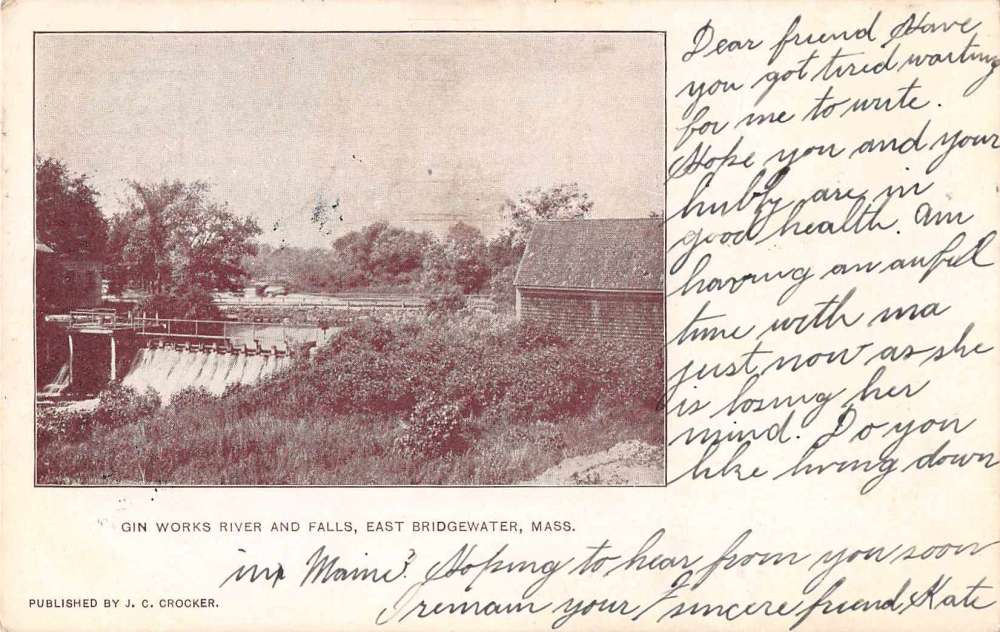 Dear friend Have
you got tired waiting
for me to write.
Hope you and your
hubby are in
good health. Am
having an awful
time with ma
just now as she
is losing her
mind. Do you
like living down
in Maine? Hoping to hear from you soon
I remain your sincere friend, Kate
GIN WORKS RIVER AND FALLS, EAST BRIDGEWATER, MASS.
PUBLISHED BY J. C. CROCKER.